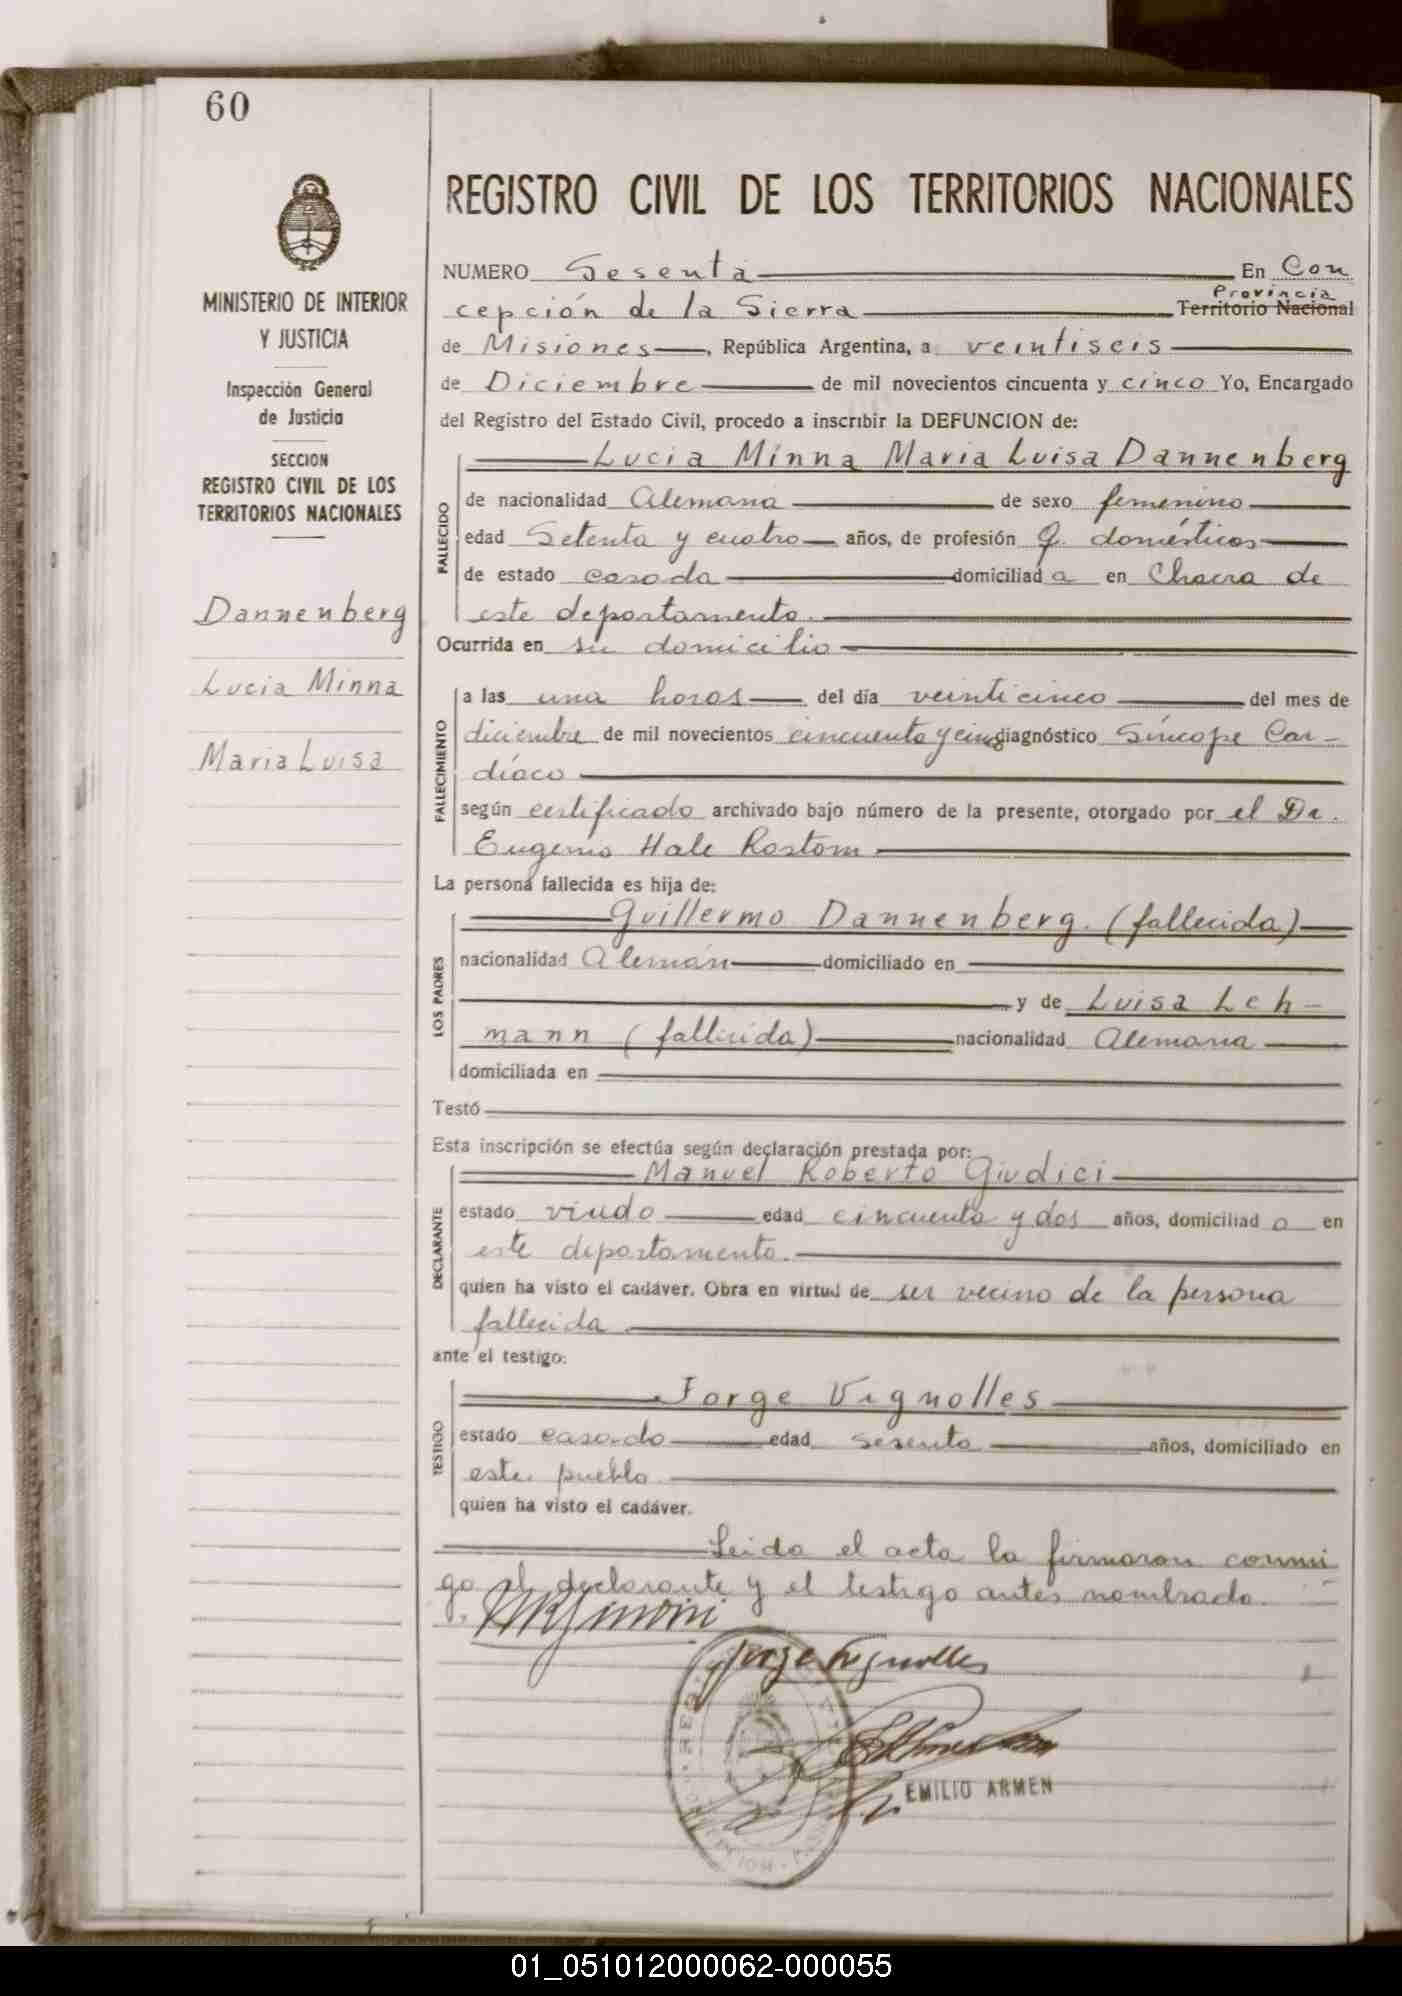 60
MINISTERIO DE INTERIOR
Y JUSTICIA
Inspección General
de Justicia
SECCION
REGISTRO CIVIL DE LOS
TERRITORIOS NACIONALES
Dannenberg
Lucia Minna
Maria Luisa
REGISTRO CIVIL DE LOS TERRITORIOS NACIONALES
NUMERO Sesenta En Con
Provincia
cepción de la Sierra Territorio Nacional
de Misiones, República Argentina, a veintiseis
de Diciembre de mil novecientos cincuenta y cinco Yo, Encargado
del Registro del Estado Civil, procedo a inscribir la DEFUNCION de:
FALLECIDO
Lucia Minna Maria Luisa Dannenberg
de nacionalidad Alemana de sexo femenino
edad Setenta y cuatro años, de profesión Q. domésticos
de estado casada domiciliada en Chacra de
este departamento.
Ocurrida en su domicilio
FALLECIMIENTO
a las una horas del día veinticinco del mes de
diciembre de mil novecientos cincuenta y cinco diagnóstico Síncope Car-
díaco
según certificado archivado bajo número de la presente, otorgado por el Dr.
Eugenio Hale Rostom
La persona fallecida es hija de:
LOS PADRES
Guillermo Dannenberg. (fallecida)
nacionalidad Alemán domiciliado en
y de Luisa Leh-
mann (fallecida) nacionalidad Alemana
domiciliada en
Testó
Esta inscripción se efectúa según declaración prestada por:
DECLARANTE
Manuel Roberto Giudici
estado viudo edad cincuenta y dos años, domiciliado en
este departamento.
quien ha visto el cadáver. Obra en virtud de ser vecino de la persona
fallecida
ante el testigo:
TESTIGO
Jorge Vignolles
estado casado edad sesenta años, domiciliado en
este pueblo
quien ha visto el cadáver.
Leida el acta la firmaron conmi
go el declarante y el testigo antes nombrado.
Jorge Vignolles
EMILIO ARMEN
01_051012000062-000055